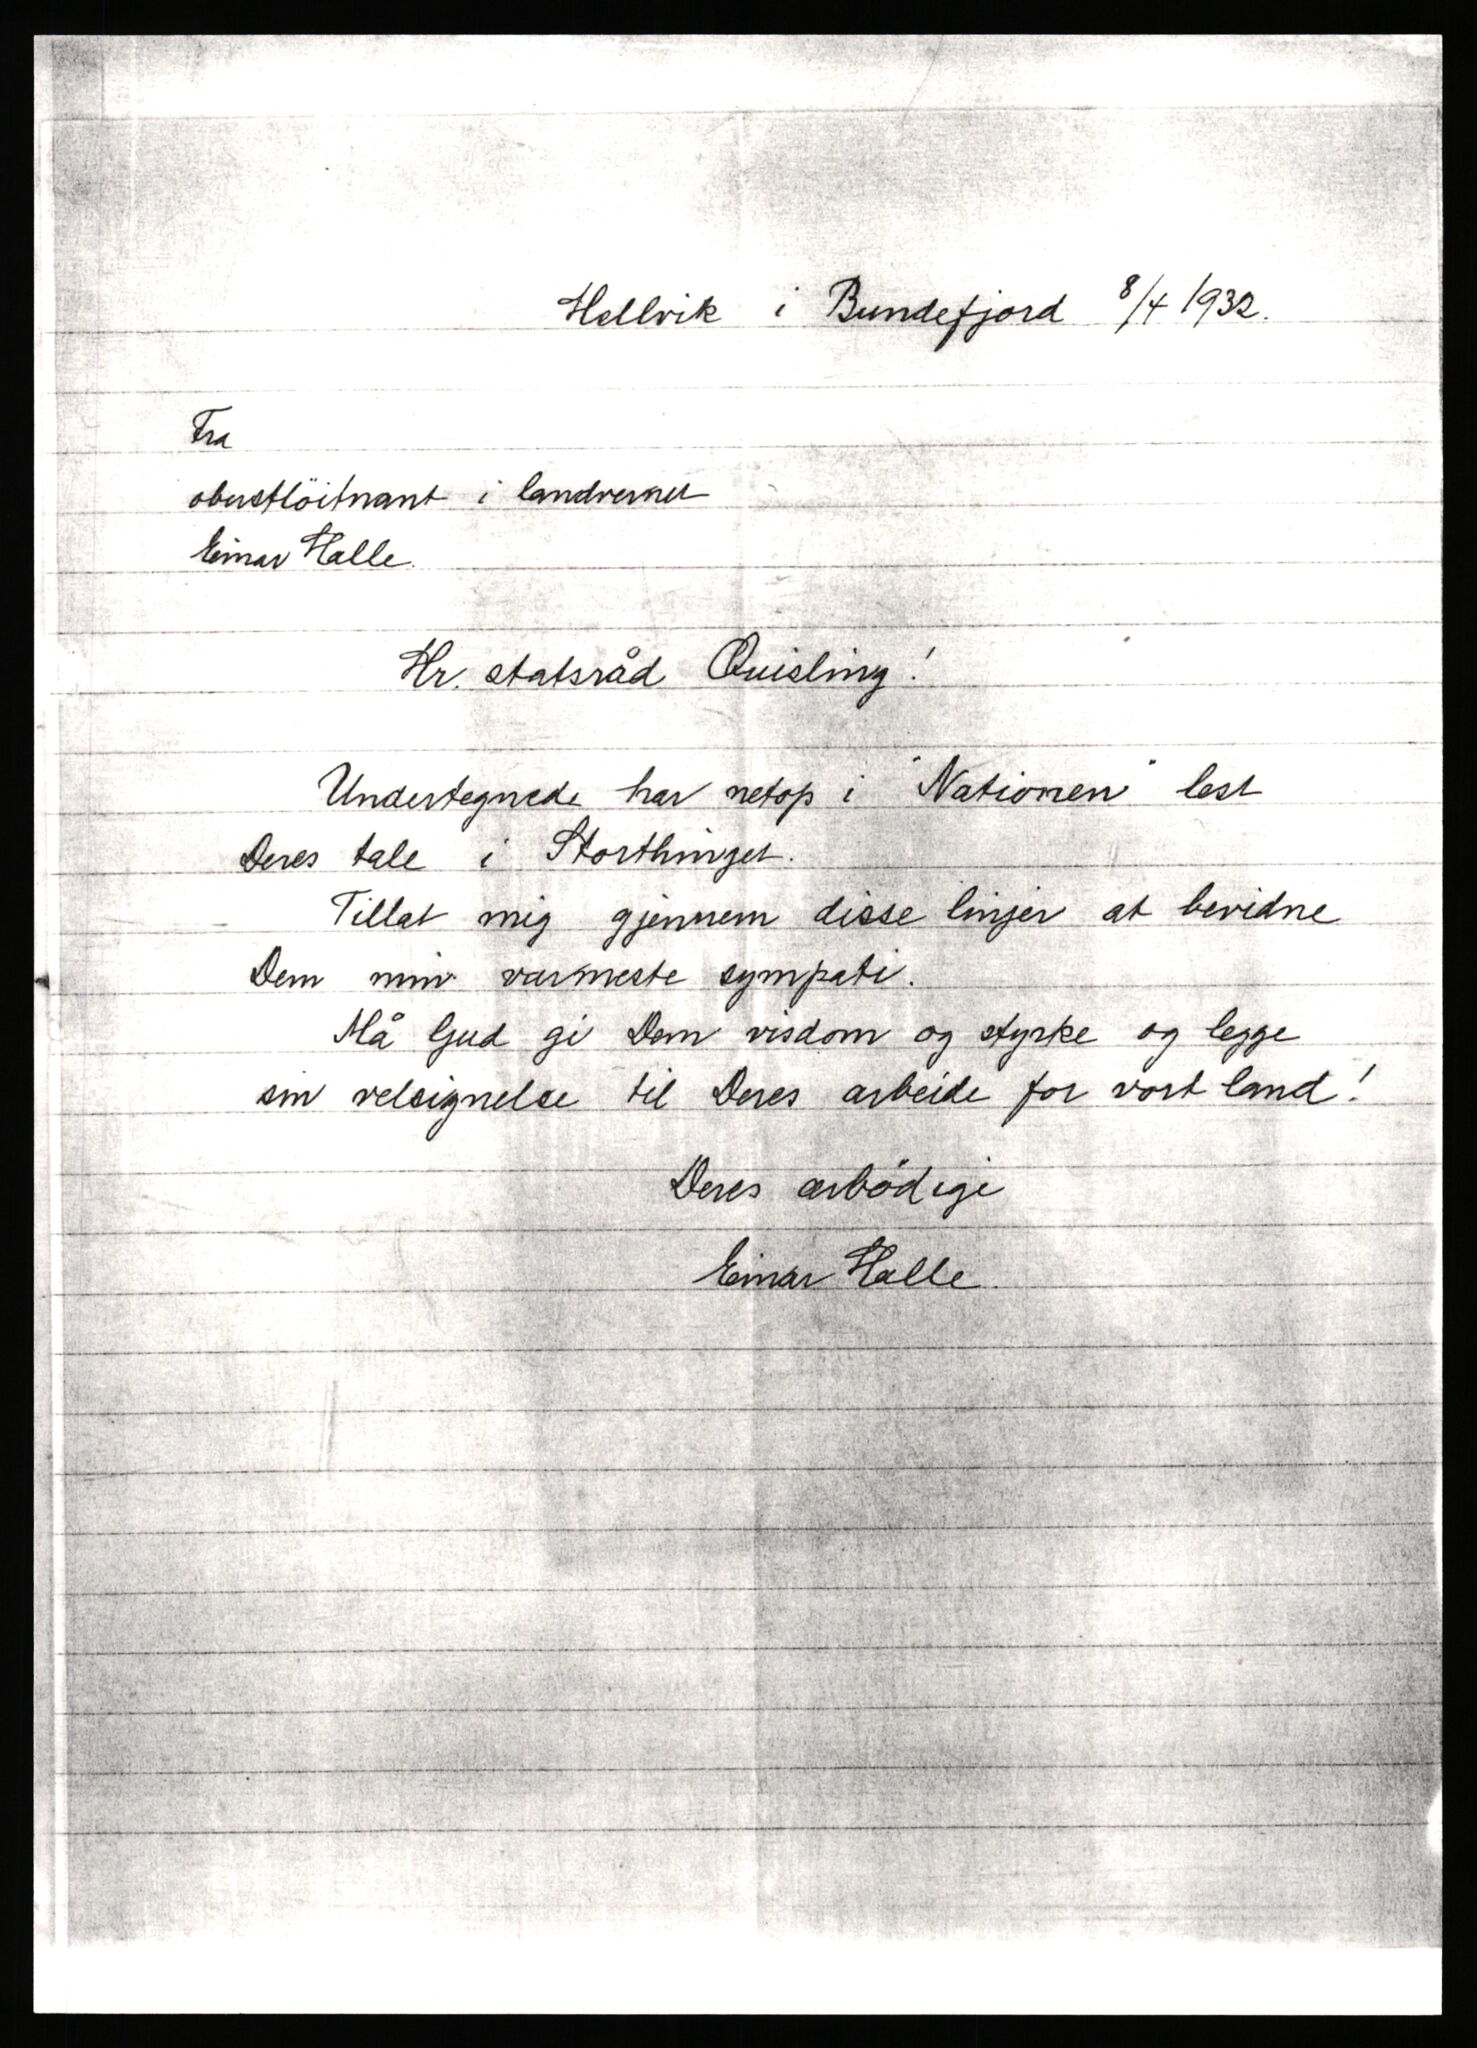 Hellvik i Bundefjord 8/4 1932.
Fra
oberstlöitnant i landvernet
Einar Halle.
Hr. statsråd Quisling!
Undertegnede har netop i "Nationen" lest
Deres tale i Storthinget.
Tillat mig gjennem disse linjer at bevidne
Dem min varmeste sympati.
Må Gud gi Dem visdom og styrke og legge
sin velsignelse til Deres arbeide for vort land!
Deres ærbödige
Einar Halle.